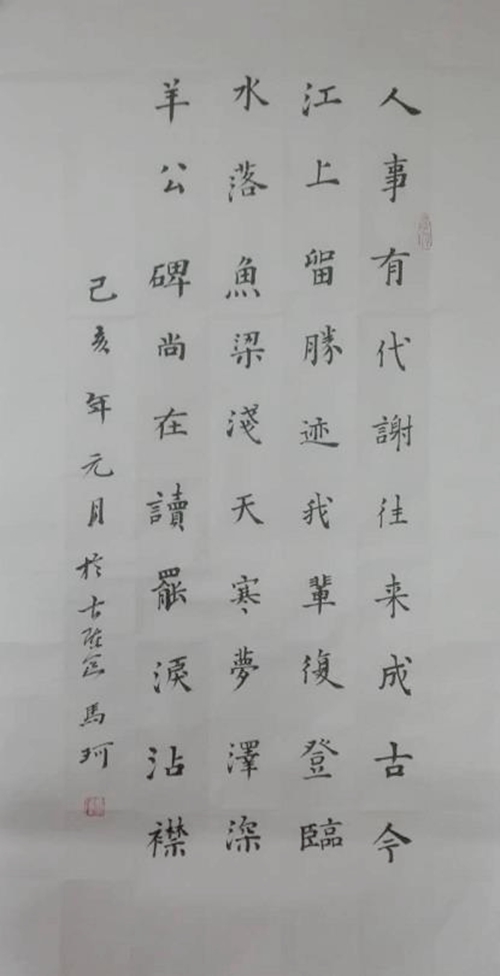 人事有代謝往来成古今
江上留勝迹我輩復登臨
水落魚梁淺天寒夢澤深
羊公碑尚在讀罷淚沾襟
己亥年元月於古雅馬珂